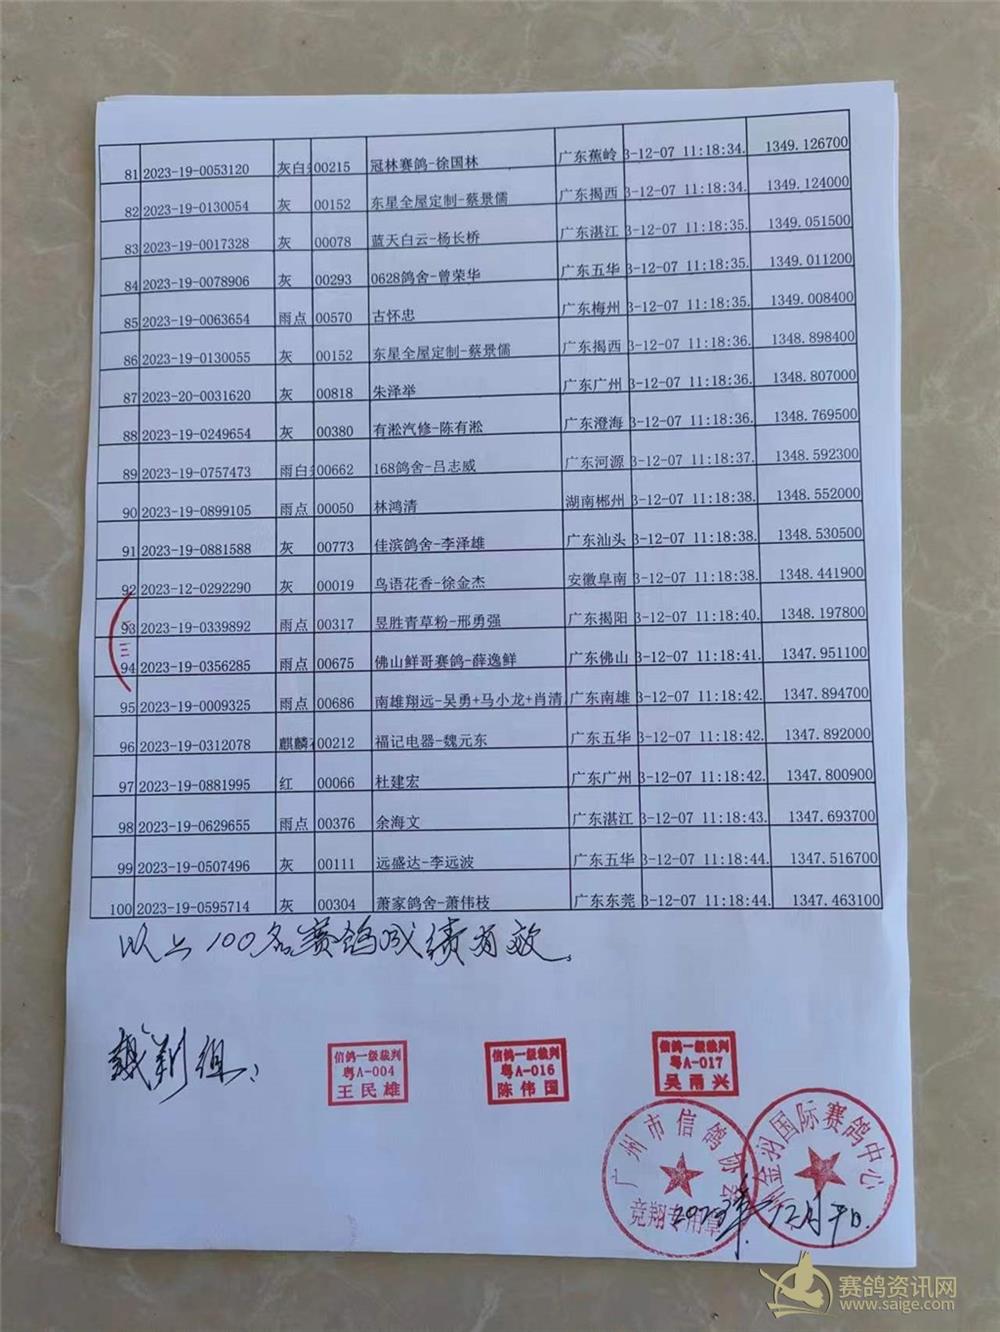 81 2023-19-0053120 灰白 00215 冠林赛鸽-徐国林 广东蕉岭 3-12-07 11:18:34. 1349.126700
82 2023-19-0130054 灰 00152 东星全屋定制-蔡景儒 广东揭西 3-12-07 11:18:34. 1349.124000
83 2023-19-0017328 灰 00078 蓝天白云-杨长桥 广东湛江 3-12-07 11:18:35. 1349.051500
84 2023-19-0078906 灰 00293 0628鸽舍-曾荣华 广东五华 3-12-07 11:18:35. 1349.011200
85 2023-19-0063654 雨点 00570 古怀忠 广东梅州 3-12-07 11:18:35. 1349.008400
86 2023-19-0130055 灰 00152 东星全屋定制-蔡景儒 广东揭西 3-12-07 11:18:36. 1348.898400
87 2023-20-0031620 灰 00818 朱泽举 广东广州 3-12-07 11:18:36. 1348.807000
88 2023-19-0249654 灰 00380 有淞汽修-陈有淞 广东澄海 3-12-07 11:18:36. 1348.769500
89 2023-19-0757473 雨白 00662 168鸽舍-吕志威 广东河源 3-12-07 11:18:37. 1348.592300
90 2023-19-0899105 雨点 00050 林鸿清 湖南郴州 3-12-07 11:18:38. 1348.552000
91 2023-19-0881588 灰 00773 佳滨鸽舍-李泽雄 广东汕头 3-12-07 11:18:38. 1348.530500
92 2023-12-0292290 灰 00019 鸟语花香-徐金杰 安徽阜南 3-12-07 11:18:38. 1348.441900
93 2023-19-0339892 雨点 00317 昱胜青草粉-邢勇强 广东揭阳 3-12-07 11:18:40. 1348.197800
94 2023-19-0356285 雨点 00675 佛山鲜哥赛鸽-薛逸鲜 广东佛山 3-12-07 11:18:41. 1347.951100
95 2023-19-0009325 雨点 00686 南雄翔远-吴勇+马小龙+肖清 广东南雄 3-12-07 11:18:42. 1347.894700
96 2023-19-0312078 麒麟 00212 福记电器-魏元东 广东五华 3-12-07 11:18:42. 1347.892000
97 2023-19-0881995 红 00066 杜建宏 广东广州 3-12-07 11:18:42. 1347.800900
98 2023-19-0629655 雨点 00376 余海文 广东湛江 3-12-07 11:18:43. 1347.693700
99 2023-19-0507496 灰 00111 远盛达-李远波 广东五华 3-12-07 11:18:44. 1347.516700
100 2023-19-0595714 灰 00304 萧家鸽舍-萧伟枝 广东东莞 3-12-07 11:18:44. 1347.463100
以上100名赛鸽成绩有效。
裁判组:
信鸽一级裁判 粤A-004 王民雄
信鸽一级裁判 粤A-016 陈伟国
信鸽一级裁判 粤A-017 吴雨兴
广州市信鸽协会
竞翔专用章
金羽国际赛鸽中心
2023年12月7日.
赛鸽资讯网
www.saige.com